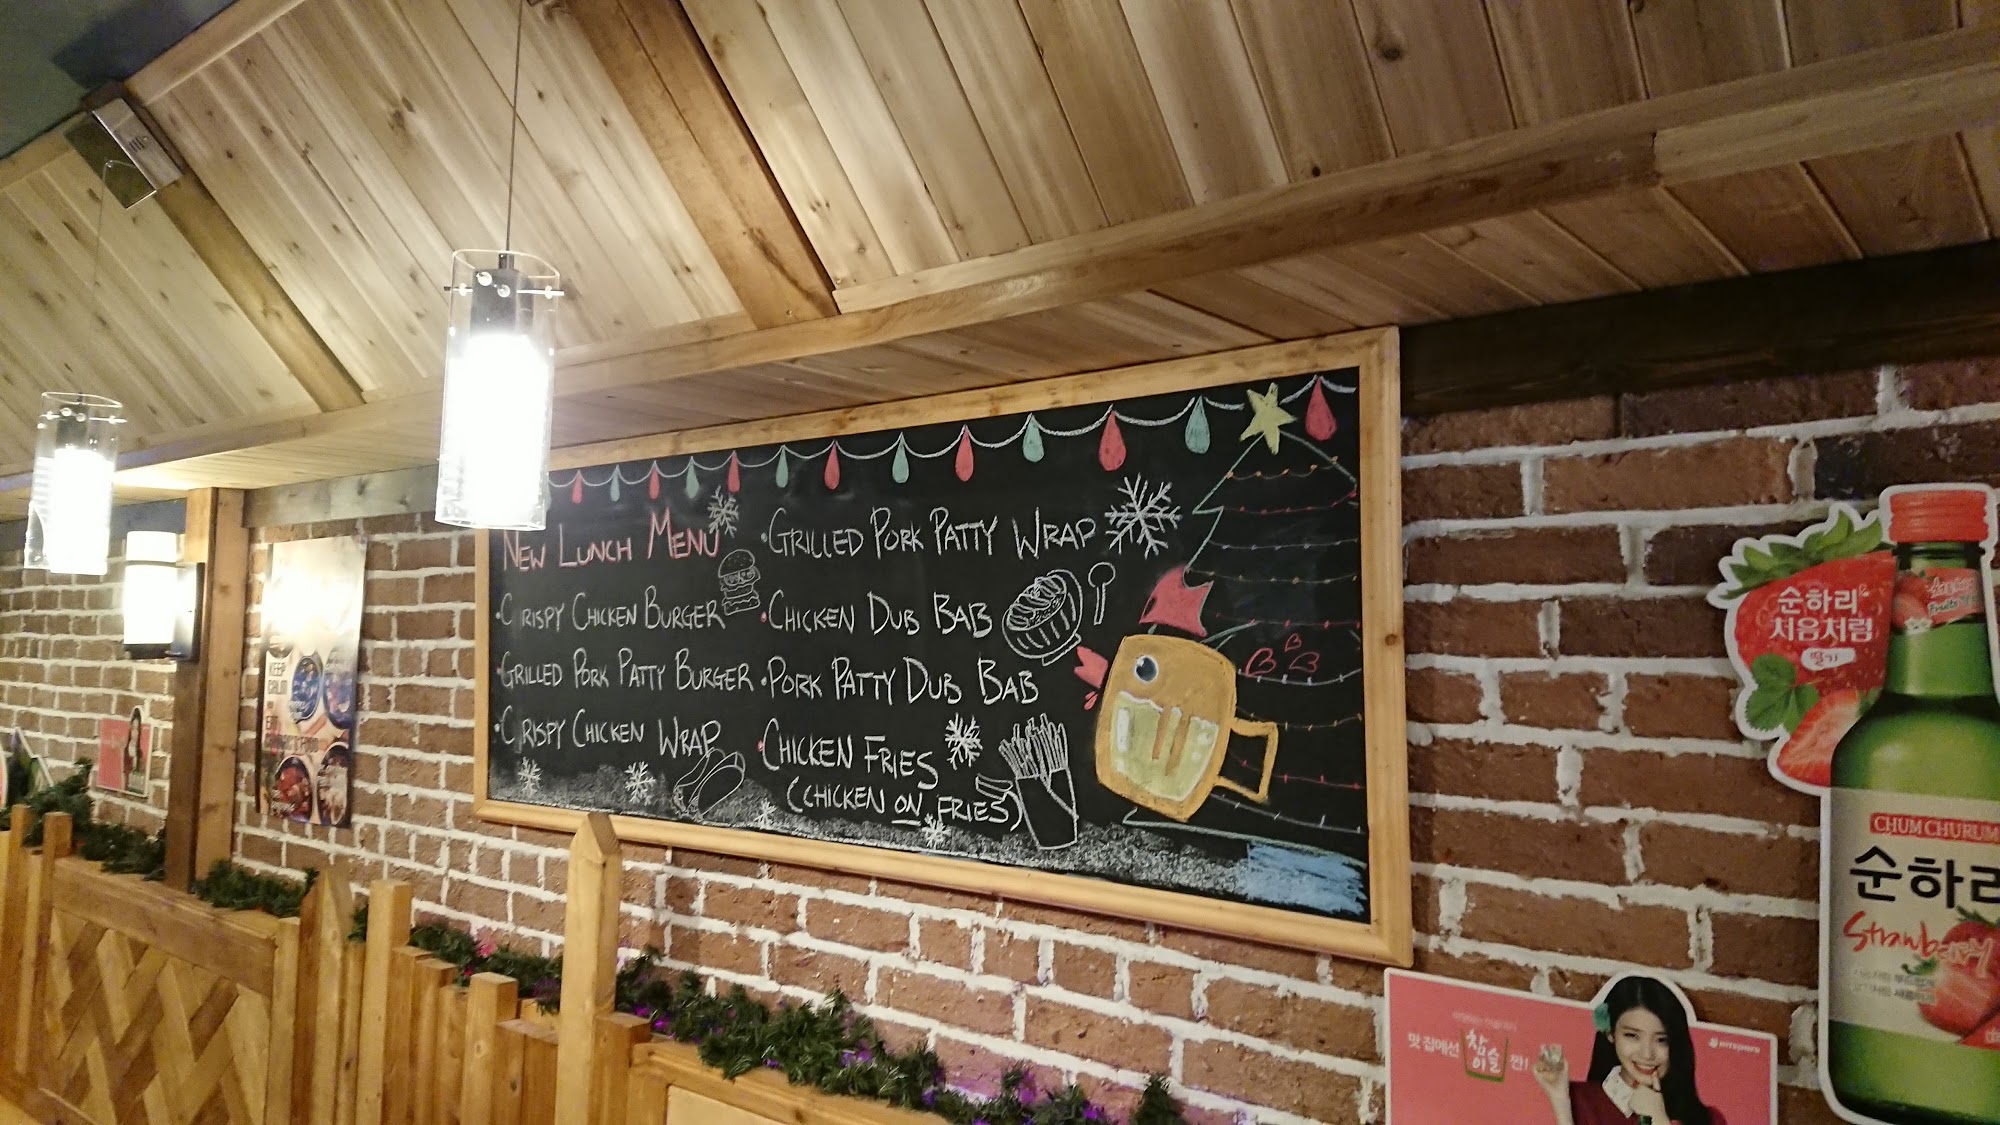 NEW LUNCH MENU
•CRISPY CHICKEN BURGER
•GRILLED PORK PATTY BURGER
•CRISPY CHICKEN WRAP
•GRILLED PORK PATTY WRAP
•CHICKEN DUB BAB
•PORK PATTY DUB BAB
•CHICKEN FRIES
(CHICKEN ON FRIES)
KEEP
CALM
EAT
순하리
처음처럼
딸기
CHUM CHURUM
순하리
Strawberry
맛 집에선 참이슬 짠!